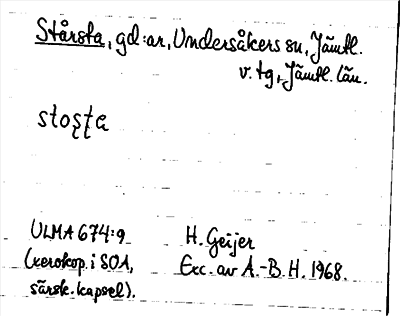 Stårsta, gd:ar, Undersåkers sn, Jämtl.
v. tg, Jämtl. län.
stoşţa
ULMA 674:9 H. Geijer
(xerokop. i SOA, Exc. av A.-B. H. 1968.
särsk. kapsel).